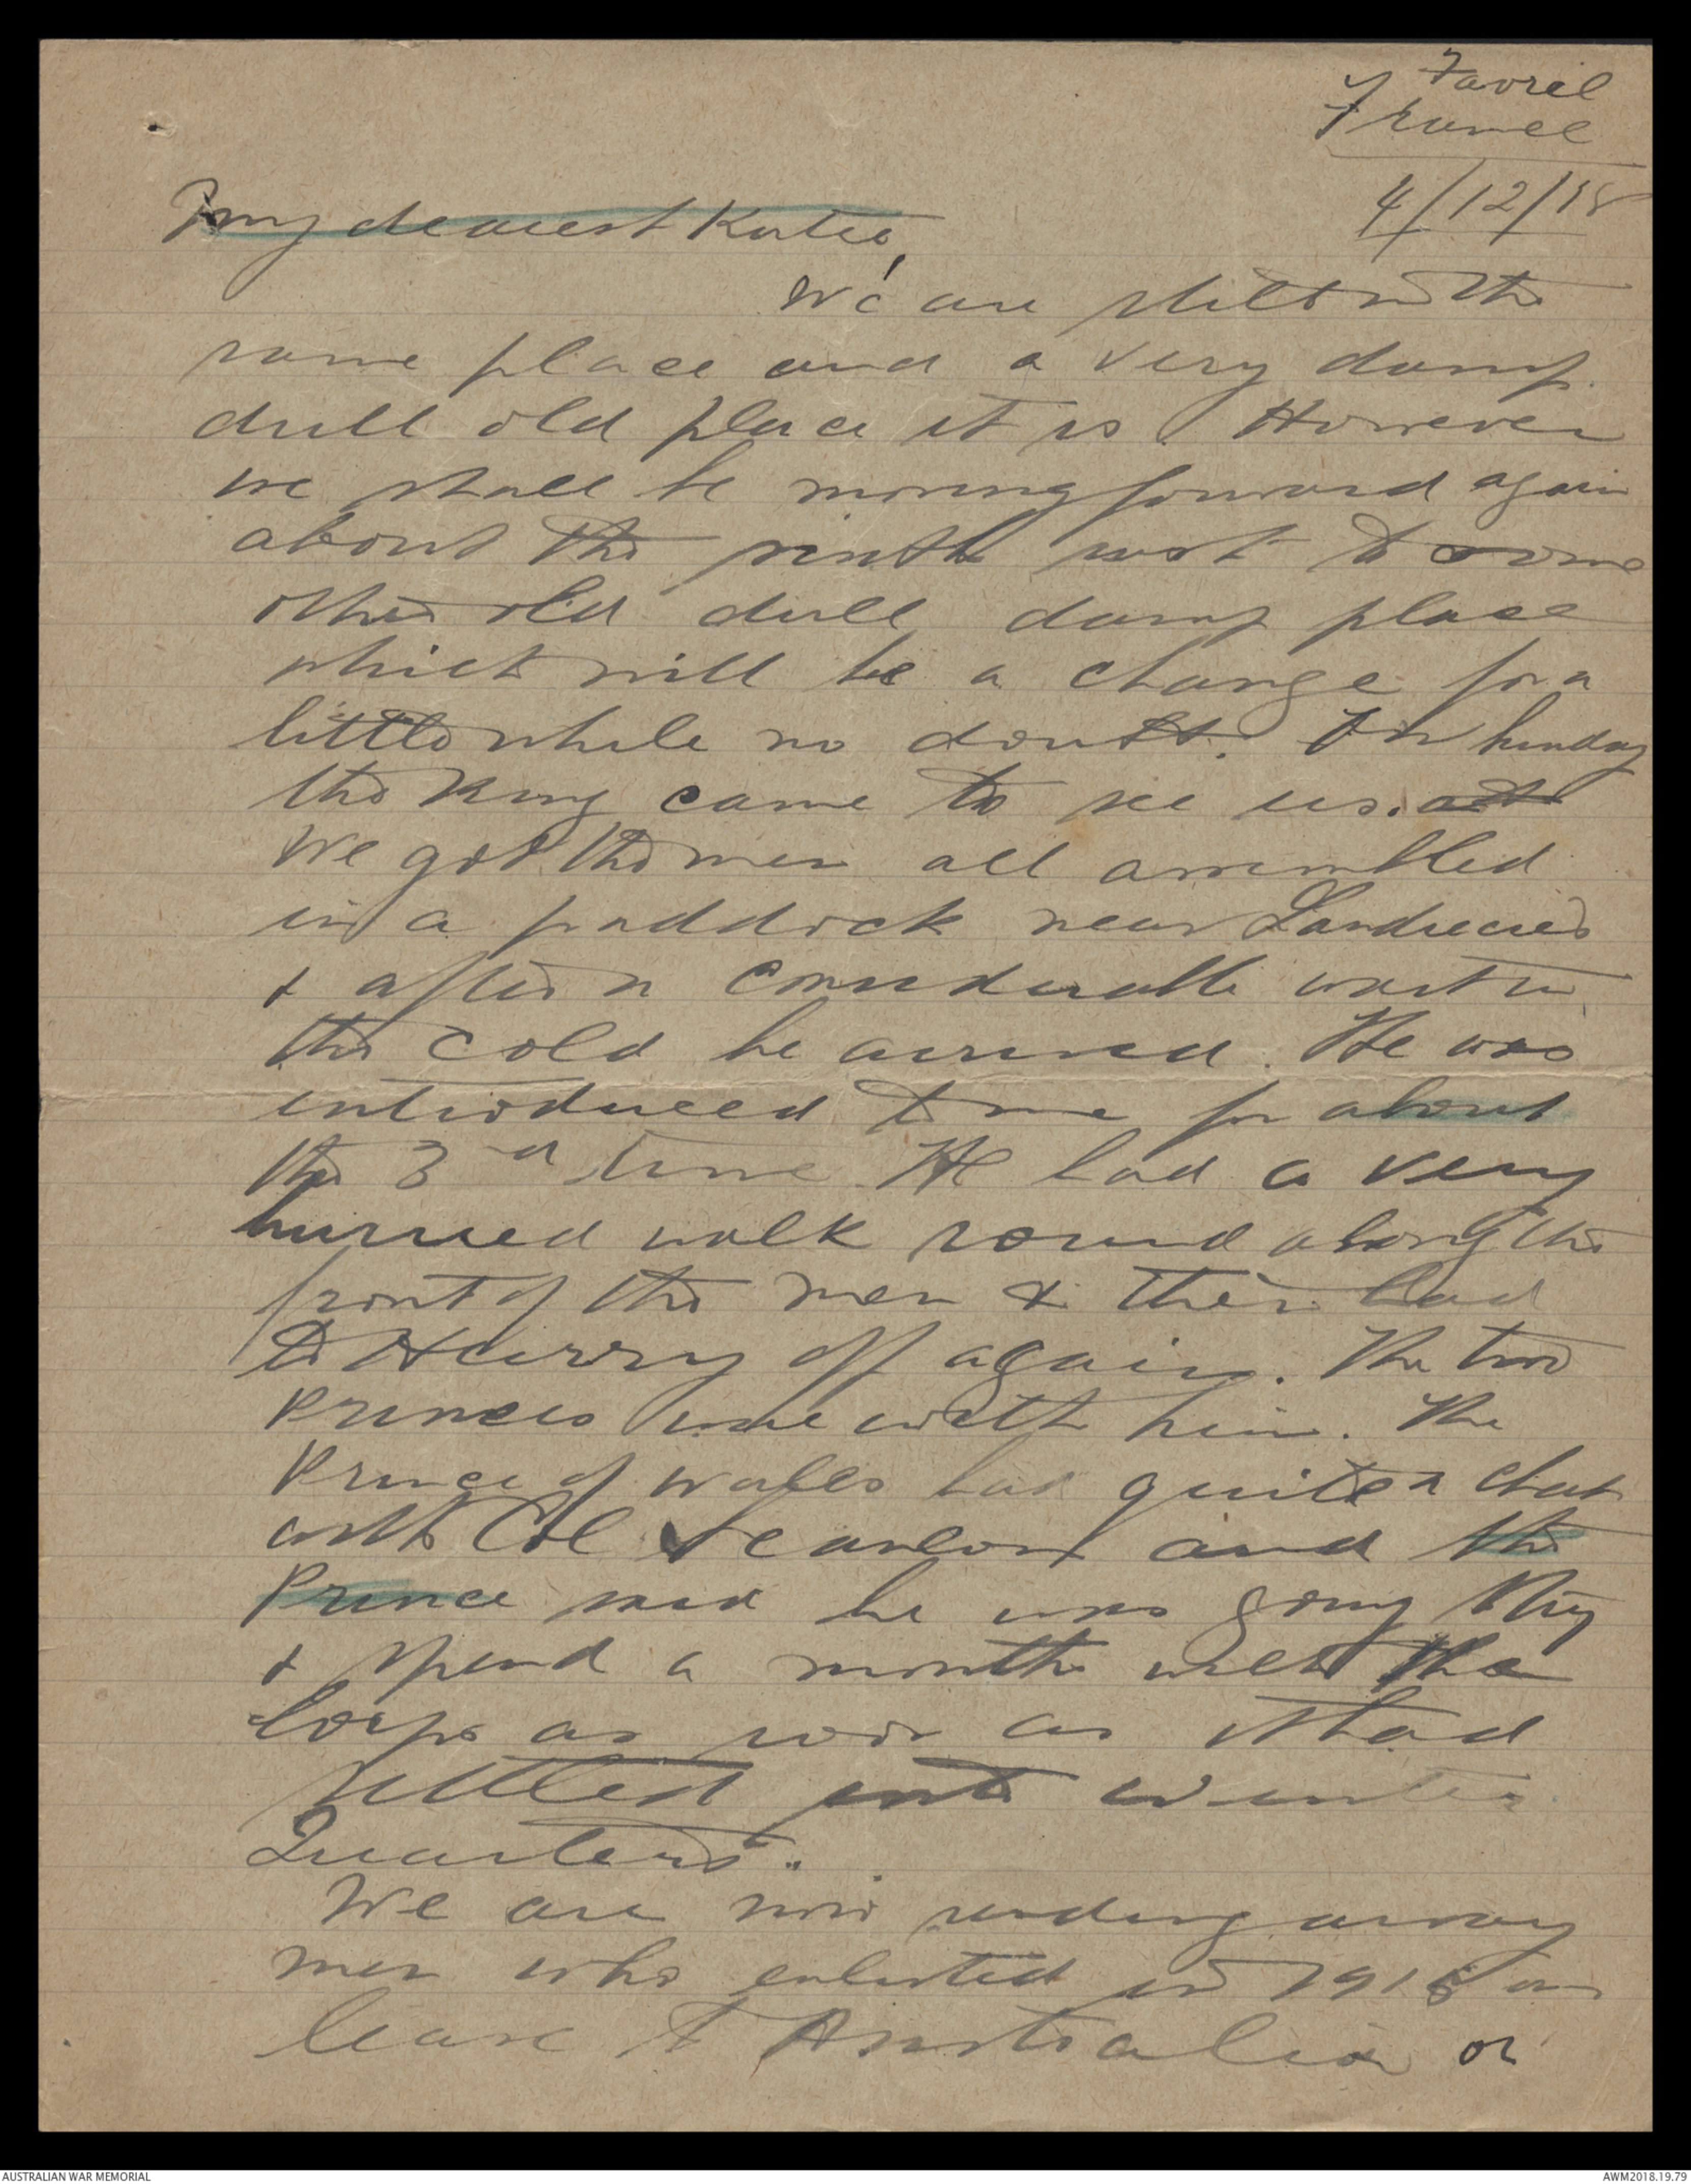 Favril
France
4/12/18
My dearest Katie,
We are still in the
same place and a very damp
dull old place it is. However
we shall be moving forward again
about the ninth inst to some
other old dull damp place
which will be a change for a
little while no doubt. On Sunday
the King came to see us.
We got the men all assembled
in a paddock near Landrecies
& after a considerable wait in
the cold he arrived. He was
introduced to me for about
the 3rd time. He had a very
hurried walk round along the
front of the men & then had
to Hurry off again. The two
Princes were with him. The
Prince of Wales had quite a chat
with Col Scanlon and the
Prince said he was going to try
& spend a month with the
Corps as soon as it had
settled into winter
Quarters.
We are now sending away
men who enlisted in 1915 on
leave to Australia or
AUSTRALIAN WAR MEMORIAL
AWM2018.19.79